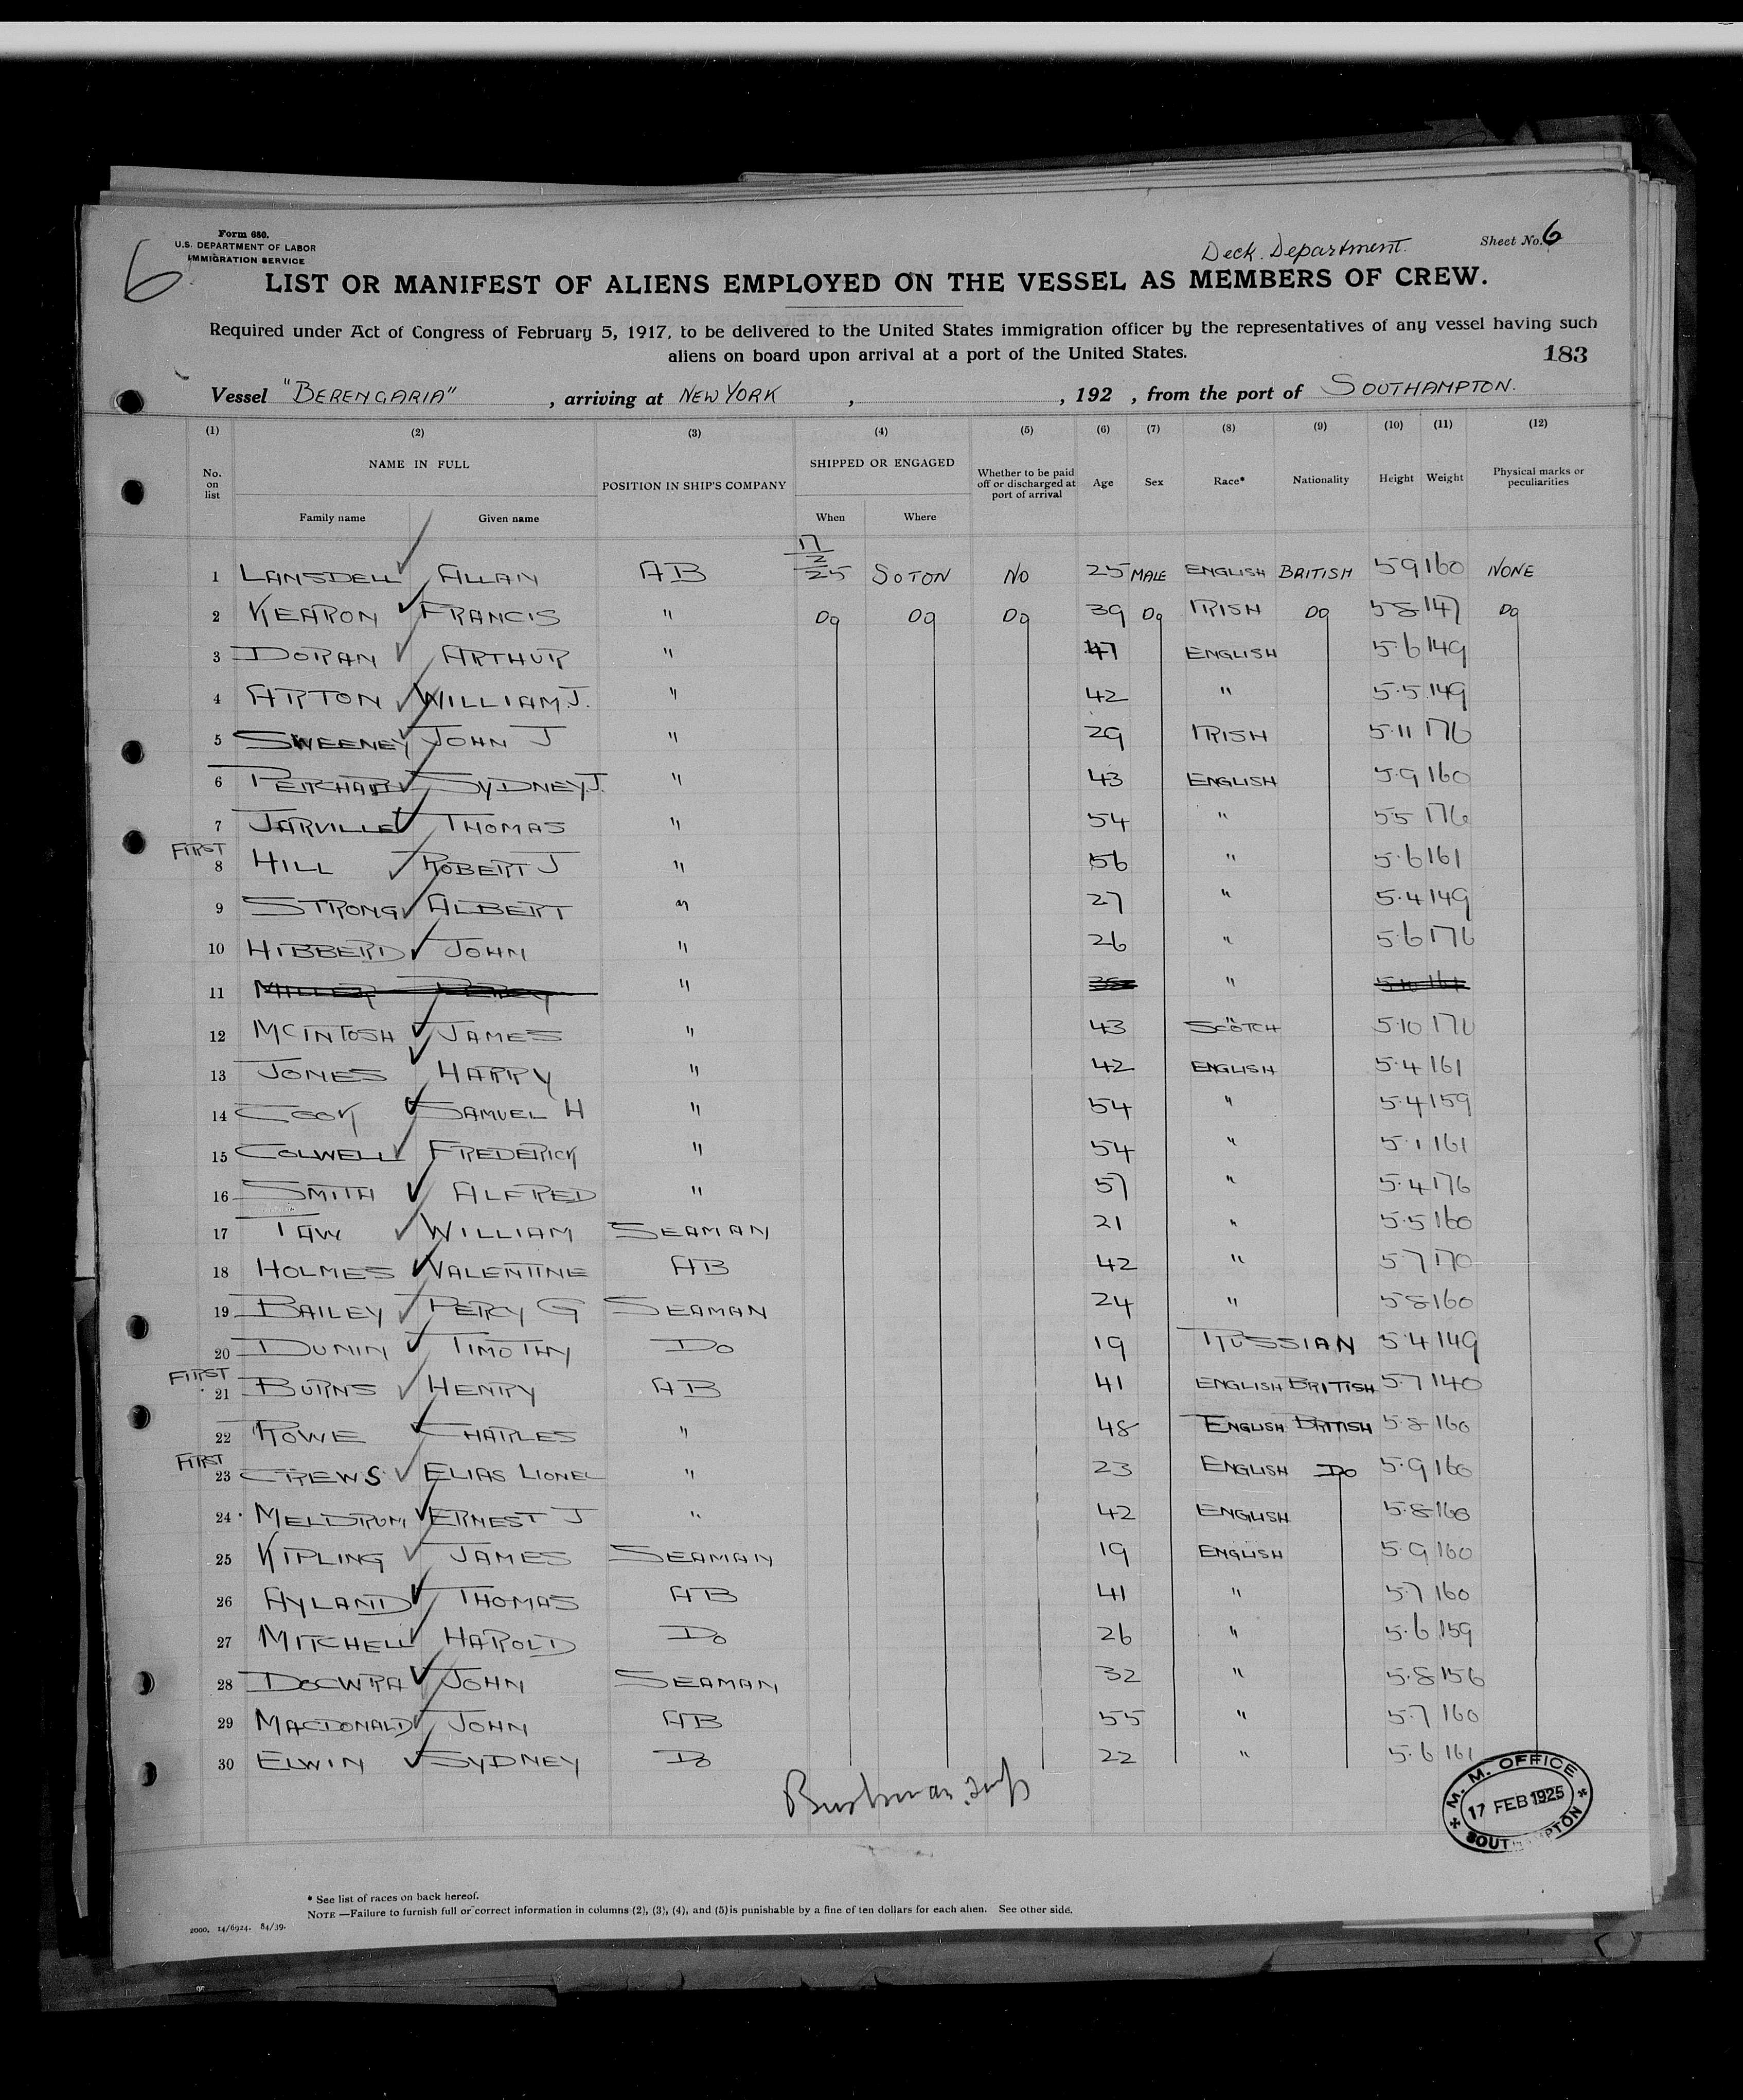 Form 680.
U.S. DEPARTMENT OF LABOR
IMMIGRATION SERVICE
6
Deck. Department.
Sheet No. 6
LIST OR MANIFEST OF ALIENS EMPLOYED ON THE VESSEL AS MEMBERS OF CREW.
Required under Act of Congress of February 5, 1917, to be delivered to the United States immigration officer by the representatives of any vessel having such
aliens on board upon arrival at a port of the United States.
183
Vessel "BERENGARIA", arriving at NEW YORK, , 192 , from the port of SOUTHAMPTON.
(1) (2) (3) (4) (5) (6) (7) (8) (9) (10) (11) (12)
No. on list NAME IN FULL POSITION IN SHIP'S COMPANY SHIPPED OR ENGAGED Whether to be paid off or discharged at port of arrival Age Sex Race* Nationality Height Weight Physical marks or peculiarities
Family name Given name When Where
1 LANSDELL ALLAN AB 17/2/25 SOTON NO 25 MALE ENGLISH BRITISH 5 9 160 NONE
2 KEARON FRANCIS " DO DO DO 39 DO IRISH DO 5 8 147 DO
3 DORAN ARTHUR " 47 ENGLISH 5.6 149
4 ARTON WILLIAM.J. " 42 " 5.5 149
5 SWEENEY JOHN J " 29 IRISH 5.11 176
6 PERCHARD SYDNEY.J. " 43 ENGLISH 5.9 160
7 JARVILLE THOMAS " 54 " 5 5 176
FIRST
8 HILL ROBERT J " 56 " 5.6 161
9 STRONG ALBERT " 27 " 5.4 149
10 HIBBERD JOHN " 26 " 5.6 176
11 MILLER PERCY " " 5.10 161
12 MCINTOSH JAMES " 43 SCOTCH 5.10 170
13 JONES HARRY " 42 ENGLISH 5.4 161
14 COOK SAMUEL H " 54 " 5.4 159
15 COLWELL FREDERICK " 54 " 5.1 161
16 SMITH ALFRED " 57 " 5.4 176
17 TAW WILLIAM SEAMAN 21 " 5.5 160
18 HOLMES VALENTINE AB 42 " 5.7 170
19 BAILEY PERCY G SEAMAN 24 " 5 8 160
20 DUNIN TIMOTHY DO 19 RUSSIAN 5.4 149
FIRST
21 BURNS HENRY AB 41 ENGLISH BRITISH 5.7 140
22 ROWE CHARLES " 48 ENGLISH BRITISH 5.8 160
FIRST
23 CREWS ELIAS LIONEL " 23 ENGLISH DO 5.9 160
24 MELDRUM ERNEST J " 42 ENGLISH 5.8 160
25 KIPLING JAMES SEAMAN 19 ENGLISH 5.9 160
26 AYLAND THOMAS AB 41 " 5.7 160
27 MITCHELL HAROLD DO 26 " 5.6 159
28 DOCWRA JOHN SEAMAN 32 " 5.8 156
29 MACDONALD JOHN AB 55 " 5.7 160
30 ELWIN SYDNEY DO 22 " 5.6 161
M. M. OFFICE
17 FEB 1925
SOUTHAMPTON
* See list of races on back hereof.
NOTE —Failure to furnish full or correct information in columns (2), (3), (4), and (5) is punishable by a fine of ten dollars for each alien. See other side.
2000, 14/6924. 84/39.